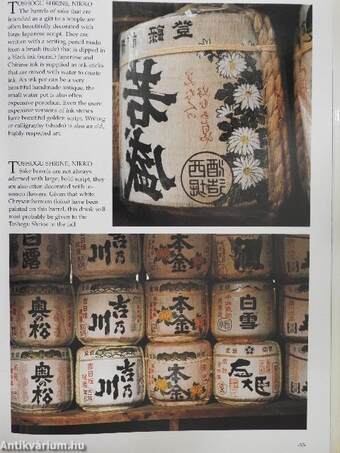 TOSHOGU SHRINE, NIKKO
The barrels of sake that are
intended as a gift to a temple are
often beautifully decorated with
large Japanese script. They are
written with a writing pencil made
from a brush (fude) that is dipped in
a black ink (sumi). Japanese and
Chinese ink is supplied as ink-sticks
that are mixed with water to create
ink. An ink pot can be a very
beautiful handmade antique, the
small water pot is also often
expensive porcelain. Even the more
expensive versions of ink stones
have beautiful golden script. Writing
or calligraphy (shodo) is also an old,
highly respected art.
TOSHOGU SHRINE, NIKKO
Sake barrels are not always
adorned with large, bold script, they
are also often decorated with in-
season flowers. Given that white
Chrysanthemum (kiku) have been
painted on this barrel, this drink will
most probably be given to the
Toshogu Shrine in the fall.
登録
醸造
西
白露
吉乃川
本金
白雪
奥の松
吉乃川
本金
白雪
奥の松
吉乃川
本金
Antikvarium.hu